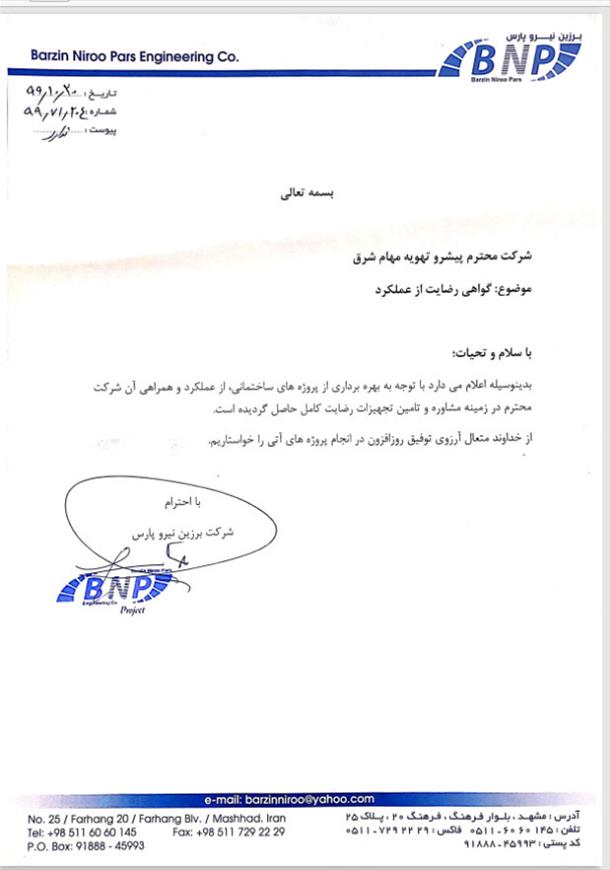 Barzin Niroo Pars Engineering Co.
برزین نیـرو پارس
BNP
Barzin Niroo Pars
تاریـخ : ۹۹/۱۰/۳۰
شماره : ۹۹/۷۱/۲۰۴
پیوست : ندارد
بسمه تعالی
شرکت محترم پیشرو تهویه مهام شرق
موضوع: گواهی رضایت از عملکرد
با سلام و تحیات؛
بدینوسیله اعلام می دارد با توجه به بهره برداری از پروژه های ساختمانی، از عملکرد و همراهی آن شرکت
محترم در زمینه مشاوره و تامین تجهیزات رضایت کامل حاصل گردیده است.
از خداوند متعال آرزوی توفیق روزافزون در انجام پروژه های آتی را خواستاریم.
با احترام
شرکت برزین نیرو پارس
Barzin Niroo Pars
BNP
Engineering Co
Project
e-mail: barzinniroo@yahoo.com
No. 25 / Farhang 20 / Farhang Blv. / Mashhad. Iran
Tel: +98 511 60 60 145 Fax: +98 511 729 22 29
P.O. Box: 91888 - 45993
آدرس : مشهـد ، بلـوار فرهنگ ، فرهنگ ۲۰ ، پـلاک ۲۵
تلفن : ۱۴۵ ۶۰ ۶۰ - ۰۵۱۱ فاکس : ۲۹ ۲۲ ۷۲۹ - ۰۵۱۱
کد پستی : ۴۵۹۹۳ - ۹۱۸۸۸